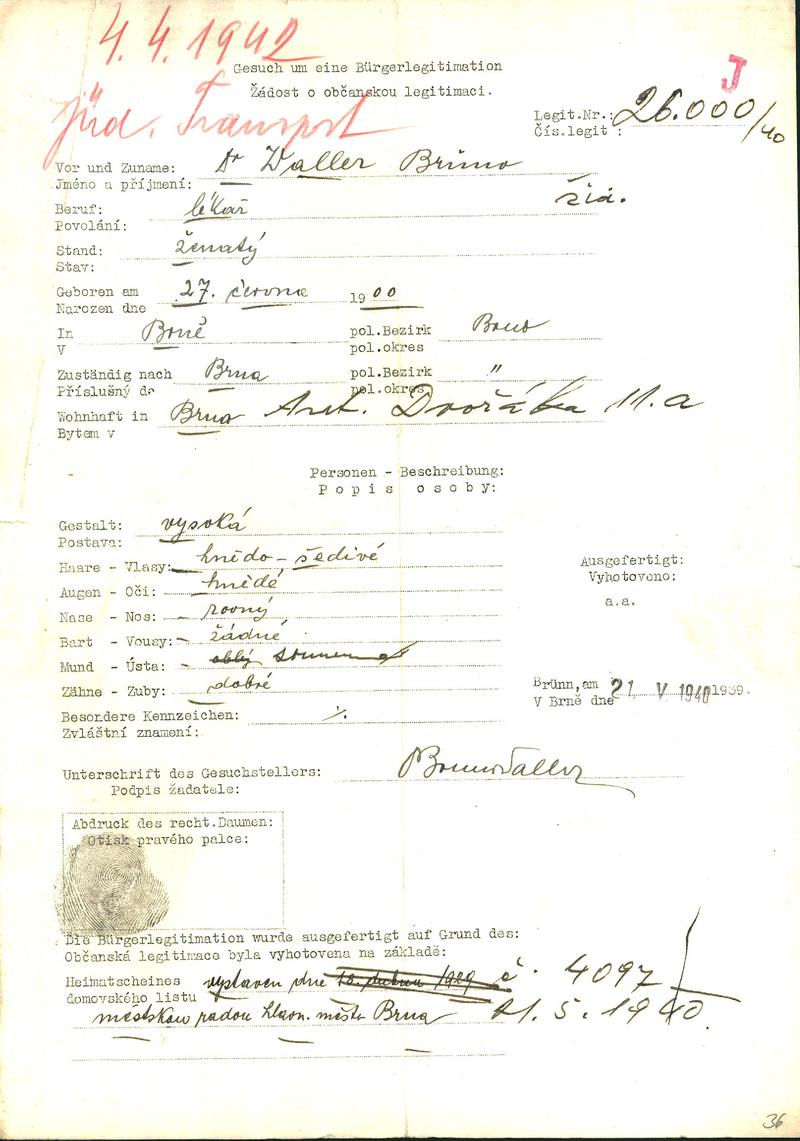 4.4.1942
Gesuch um eine Bürgerlegitimation
Žádost o občanskou legitimaci.
J
Jüd. Transport
Legit.Nr.: 26.000/40
Čís.legit :
Vor und Zuname: Dr Waller Bruno
Jméno a příjmení:
žid.
Beruf: lékař
Povolání:
Stand: ženatý
Stav:
Geboren am 27. června 1900
Narozen dne
In Brně pol.Bezirk Brno
V pol.okres
Zuständig nach Brna pol.Bezirk "
Příslušný do pol.okres
Wohnhaft in Brno Ant. Dvořáka 11.a
Bytem v
Personen - Beschreibung:
Popis osoby:
Gestalt: vysoká
Postava:
Haare - Vlasy: hnědo - šedivé
Augen - Oči: hnědé
Nase - Nos: rovný
Bart - Vousy: žádné
Mund - Ústa: oblý
Zähne - Zuby: dobré
Besondere Kennzeichen: ·/.
Zvláštní znamení:
Ausgefertigt:
Vyhotoveno:
a.a.
Brünn, am 21 V 1940 1939.
V Brně dne
Unterschrift des Gesuchstellers: Bruno Waller
Podpis žadatele:
Abdruck des recht.Daumen:
Otisk pravého palce:
Die Bürgerlegitimation wurde ausgefertigt auf Grund des:
Občanská legitimace byla vyhotovena na základě:
Heimatscheines vystaven dne 18. dubna 1929 č. 4097
domovského listu
městskou radou hlavn. města Brna 21.5.1940.
36